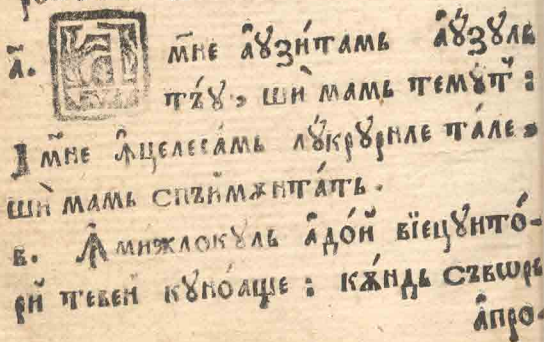 а҃. Дм҃не а҆ꙋзи́тамь а҆ꙋ́зꙋль
тъ́ꙋ, шѝ мамь темꙋ́т :
Дм҃не ꙟ҆целеса́мь лꙋ́крꙋриле та́ле,
шѝ мамь спъи́мѫнта́ть.
в. ꙟ҆мижлокꙋль а҆до́й вїецꙋито́-
рй тевей кꙋно́аще : кѫ́ндь съворь
а҆про-